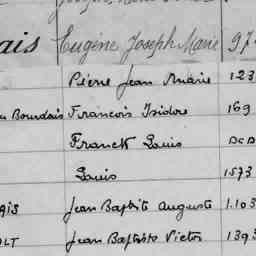 ais Eugène Joseph Marie 97
Pierre Jean Marie 123
u Bourdais Francois Isidore 169
Franck Louis DCD
Louis 1573
AIS Jean Baptiste Auguste 1.103
OLT Jean Baptiste Victor 1393